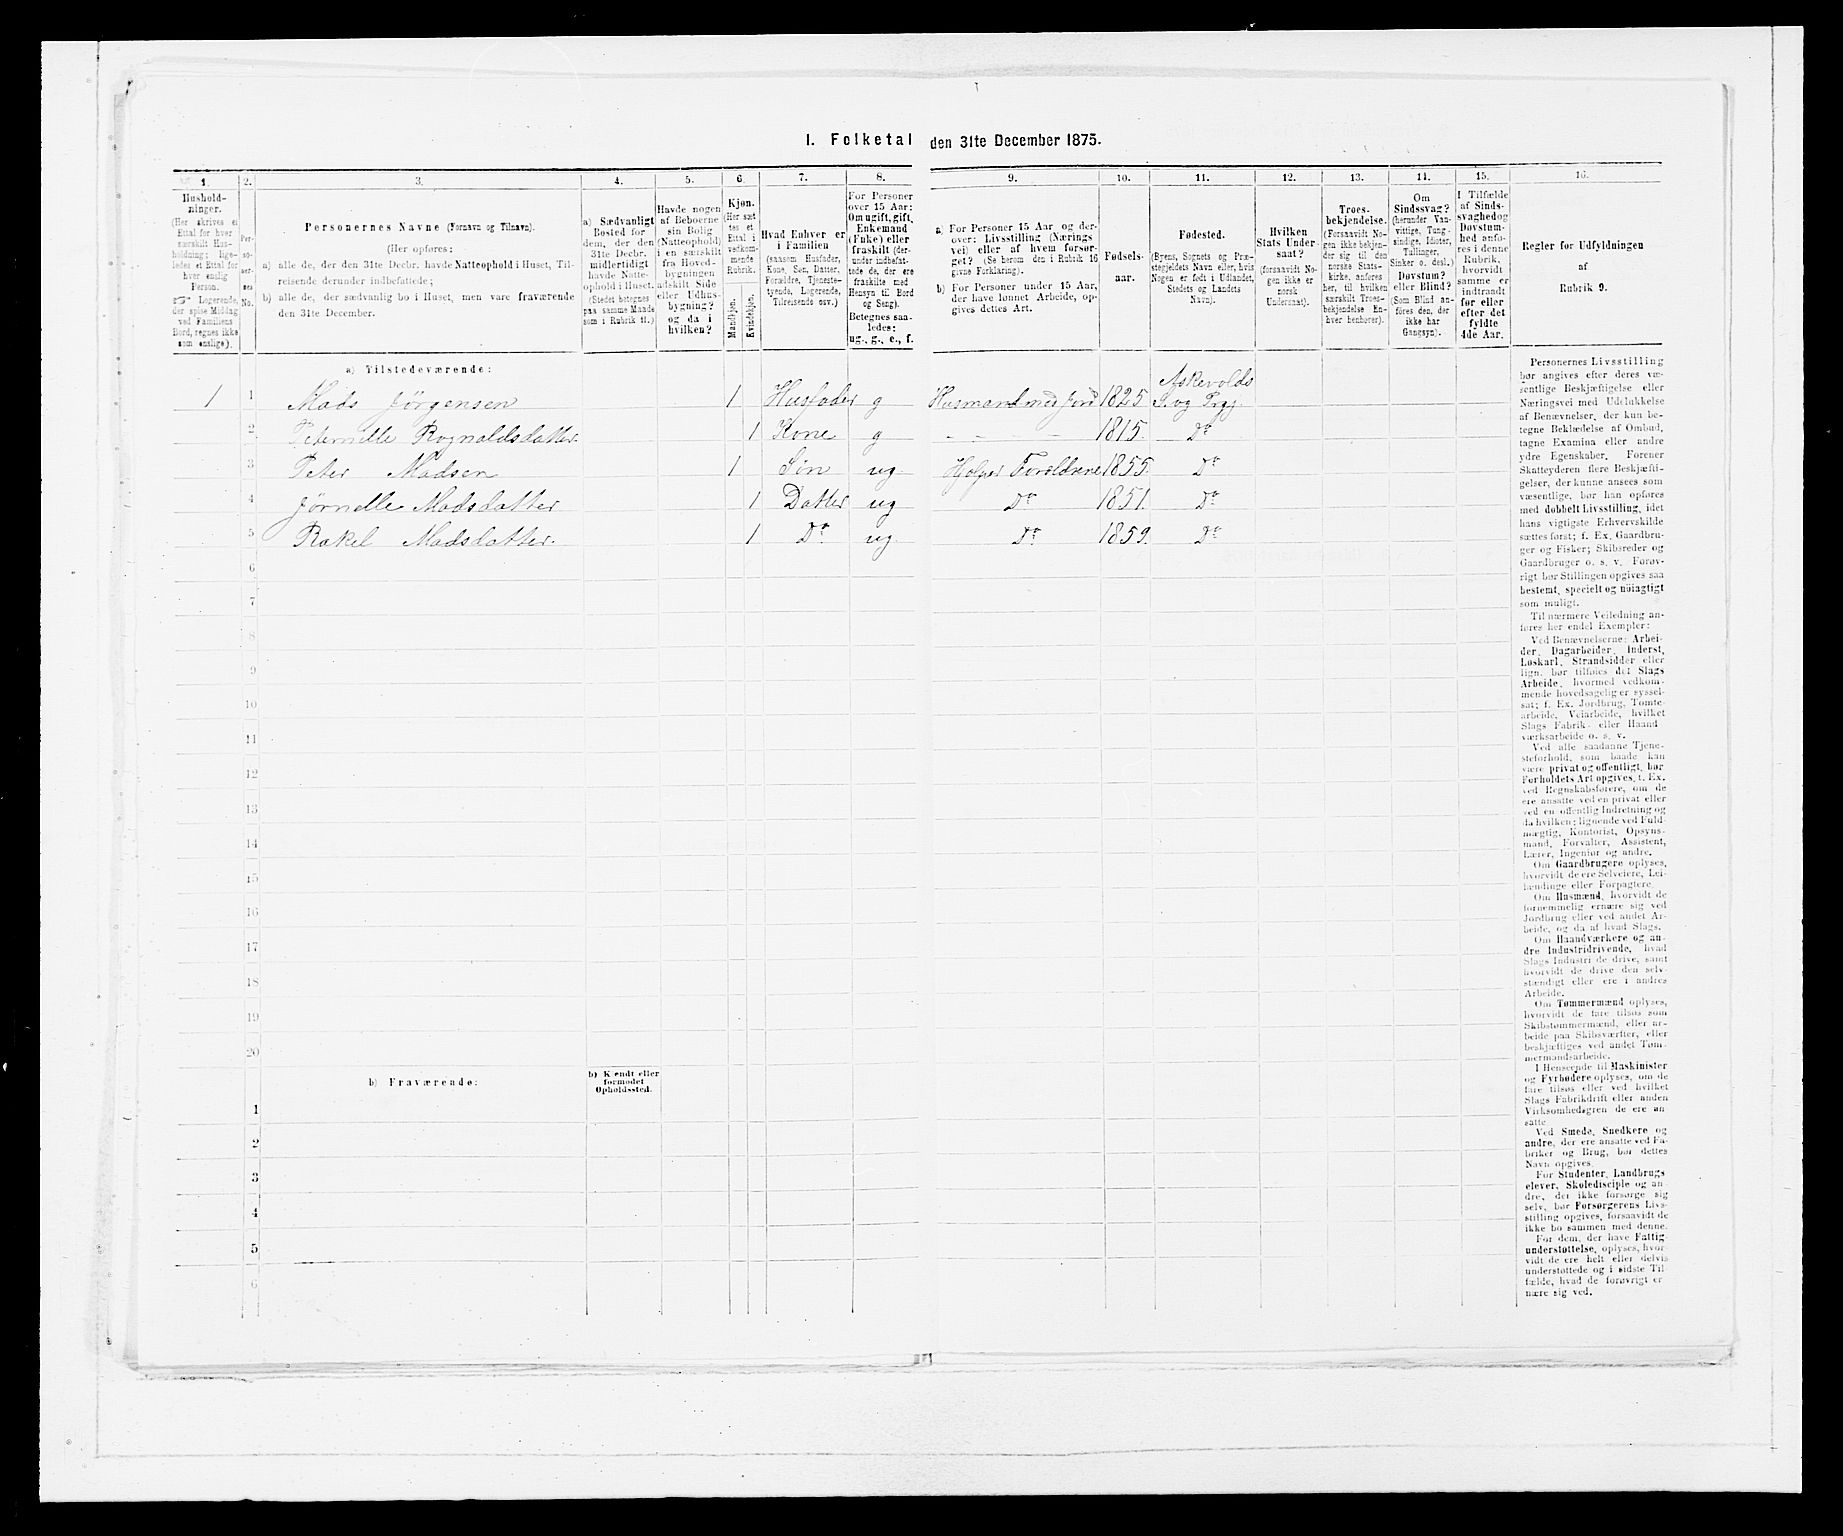 I. Folketal den 31te December 1875.
1. 2. 3. 4. 5. 6. 7. 8. 9. 10. 11. 12. 13. 14. 15. 16.
Hushold-
ninger.
(Her skrives et
Ettal for hver
særskilt Hus-
holdning; lige-
ledes et Ettal for
hver enslig
Person.
☞ Logerende,
der spise Middag
ved Familiens
Bord, regnes ikke
som enslige).
Per-
so-
ner-
nes
No.
Personernes Navne (Fornavn og Tilnavn).
(Her opføres:
a) alle de, der den 31te Decbr. havde Natteophold i Huset, Til-
reisende derunder indbefattede;
b) alle de, der sædvanlig bo i Huset, men vare fraværende
den 31te December.
a) Sædvanligt
Bosted for
dem, der den
31te Decbr.
midlertidigt
havde Natte-
ophold i Huset.
(Stedet betegnes
paa samme Maade
som i Rubrik 11.)
Havde nogen
af Beboerne
sin Bolig
(Natteophold)
i en særskilt
fra Hoved-
bygningen
adskilt Side
eller Udhus-
bygning?
og da i
hvilken?
Kjøn.
(Her sæt
tes et
Ettal i
vedkom-
mende
Rubrik.
Mandkjøn.
Kvindekjøn.
Hvad Enhver er
i Familien
(saasom Husfader,
Kone, Søn, Datter,
Forældre, Tjeneste-
tyende, Logerende,
Tilreisende osv.)
For Personer
over 15 Aar:
Om ugift, gift,
Enkemand
(Enke) eller
fraskilt (der-
under indbefat-
tede de, der ere
fraskilte med
Hensyn til Bord
og Seng).
Betegnes saa-
ledes:
ug., g., e., f.
a) For Personer 15 Aar og der-
over: Livsstilling (Nærings
vei) eller af hvem forsør-
get? (Se herom den i Rubrik 16
givne Forklaring).
b) For Personer under 15 Aar,
der have lønnet Arbeide, op-
gives dettes Art.
Fødsels-
aar.
Fødested.
(Byens, Sognets og Præ-
stegjeldets Navn eller, hvis
Nogen er født i Udlandet,
Stedets og Landets
Navn).
Hvilken
Stats Under-
saat?
(forsaavidt No-
gen ikke er
norsk
Undersaat).
Troes-
bekjendelse.
(Forsaavidt No-
gen ikke bekjen-
der sig til den
norske Stats-
kirke, anføres
her, til hvilken
særskilt Troes-
bekjendelse En-
hver henhører).
Om
Sindssvag?
(herunder Van-
vittige, Tung-
sindige, Idioter,
Tullinger,
Sinker o. desl.)
Døvstum?
eller Blind?
(Som Blind an-
føres den, der
ikke har
Gangsyn).
I Tilfælde
af Sinds-
svaghed og
Døvstum-
hed anfø-
res i denne
Rubrik,
hvorvidt
samme er
indtraadt
før eller
efter det
fyldte
4de Aar.
Regler for Udfyldningen
af
Rubrik 9.
a) Tilstedeværende:
1 1 Mads Jørgensen 1 Husfader g Husmand med Jord 1825 Askevolds S. og Prgj
2 Peternille Rognaldsdatter 1 Kone g - - - - 1815. Do
3 Peter Madsen 1 Søn ug. Hjelper Forældrene 1855. Do
4 Jørnelle Madsdatter 1 Datter ug Do 1851. Do
5 Rakel Madsdatter. 1 Do ug. Do 1859. Do
6
7
8
9
10
11
12
13
14
15
16
17
18
19
20
b) Fraværende:
b) Kjendt eller
formodet
Opholdssted.
1
2
3
4
5
6
Personernes Livsstilling
bør angives efter deres væ-
sentlige Beskjæftigelse eller
Næringsvei med Udelukkelse
af Benævnelser, der kun be-
tegne Beklædelse af Ombud,
tagne Examina eller andre
ydre Egenskaber. Forener
Skatteyderen flere Beskjæfti-
gelser, der kunne ansees som
væsentlige, bør han opføres
med dobbelt Livsstilling, idet
hans vigtigste Erhvervskilde
sættes først; f. Ex. Gaardbru-
ger og Fisker; Skibsreder og
Gaardbruger o. s. v. Forøv-
rigt bør Stillingen opgives saa
bestemt, specielt og nöiagtigt
som muligt.
Til nærmere Veiledning an-
føres her endel Exempler:
Ved Benævnelserne: Arbei-
der, Dagarbeider, Inderst,
Løskarl, Strandsidder eller
lign. bør tilføies det Slags
Arbeide, hvormed vedkom-
mende hovedsagelig er syssel-
sat; f. Ex. Jordbrug, Tomte-
arbeide, Veiarbeide, hvilket
Slags Fabrik- eller Haand
værksarbeide o. s. v.
Ved alle saadanne Tjene-
steforhold, som baade kan
være privat og offentligt, bør
Forholdets Art opgives, t. Ex.
ved Regnskabsførere, om de
ere ansatte ved en privat eller
ved en offentlig Indretning og
da hvilken; lignende ved Fuld-
mægtig, Kontorist, Opsyns-
mand, Forvalter, Assistent,
Lærer, Ingeniør og andre.
Om Gaardbrugere oplyses,
hvorvidt de ere Selveiere, Lei-
lændinge eller Forpagtere.
Om Husmænd, hvorvidt de
fornemmelig ernære sig ved
Jordbrug eller ved andet Ar-
beide, og da af hvad Slags.
Om Haandværkere og an-
dre Industridrivende, hvad
Slags Industri de drive, samt
hvorvidt de drive den selv-
stændigt eller ere i andres
Arbeide.
Om Tømmermænd oplyses,
hvorvidt de fare tilsøs som
Skibstømmermænd, eller ar-
beide paa Skibsværfter, eller
beskjæftiges ved andet Tøm-
mermandsarbeide.
I Henseende til Maskinister
og Fyrbødere oplyses, om de
fare tilsøs eller ved hvilket
Slags Fabrikdrift eller anden
Virksomhedsgren de ere an-
satte
Ved Smede, Snedkere og
andre, der ere ansatte ved Fa-
briker og Brug, bør dettes
Navn opgives.
For Studenter, Landbrugs
elever, Skoledisciple og an-
dre, der ikke forsørge sig
selv, bør Forsørgerens Livs-
stilling opgives, forsaavidt de
ikke bo sammen med denne.
For dem, der have Fattig-
understøttelse, oplyses, hvor-
vidt de ere helt eller delvis
understøttede og i sidste Til-
fælde, hvad de forøvrigt er
nære sig ved.